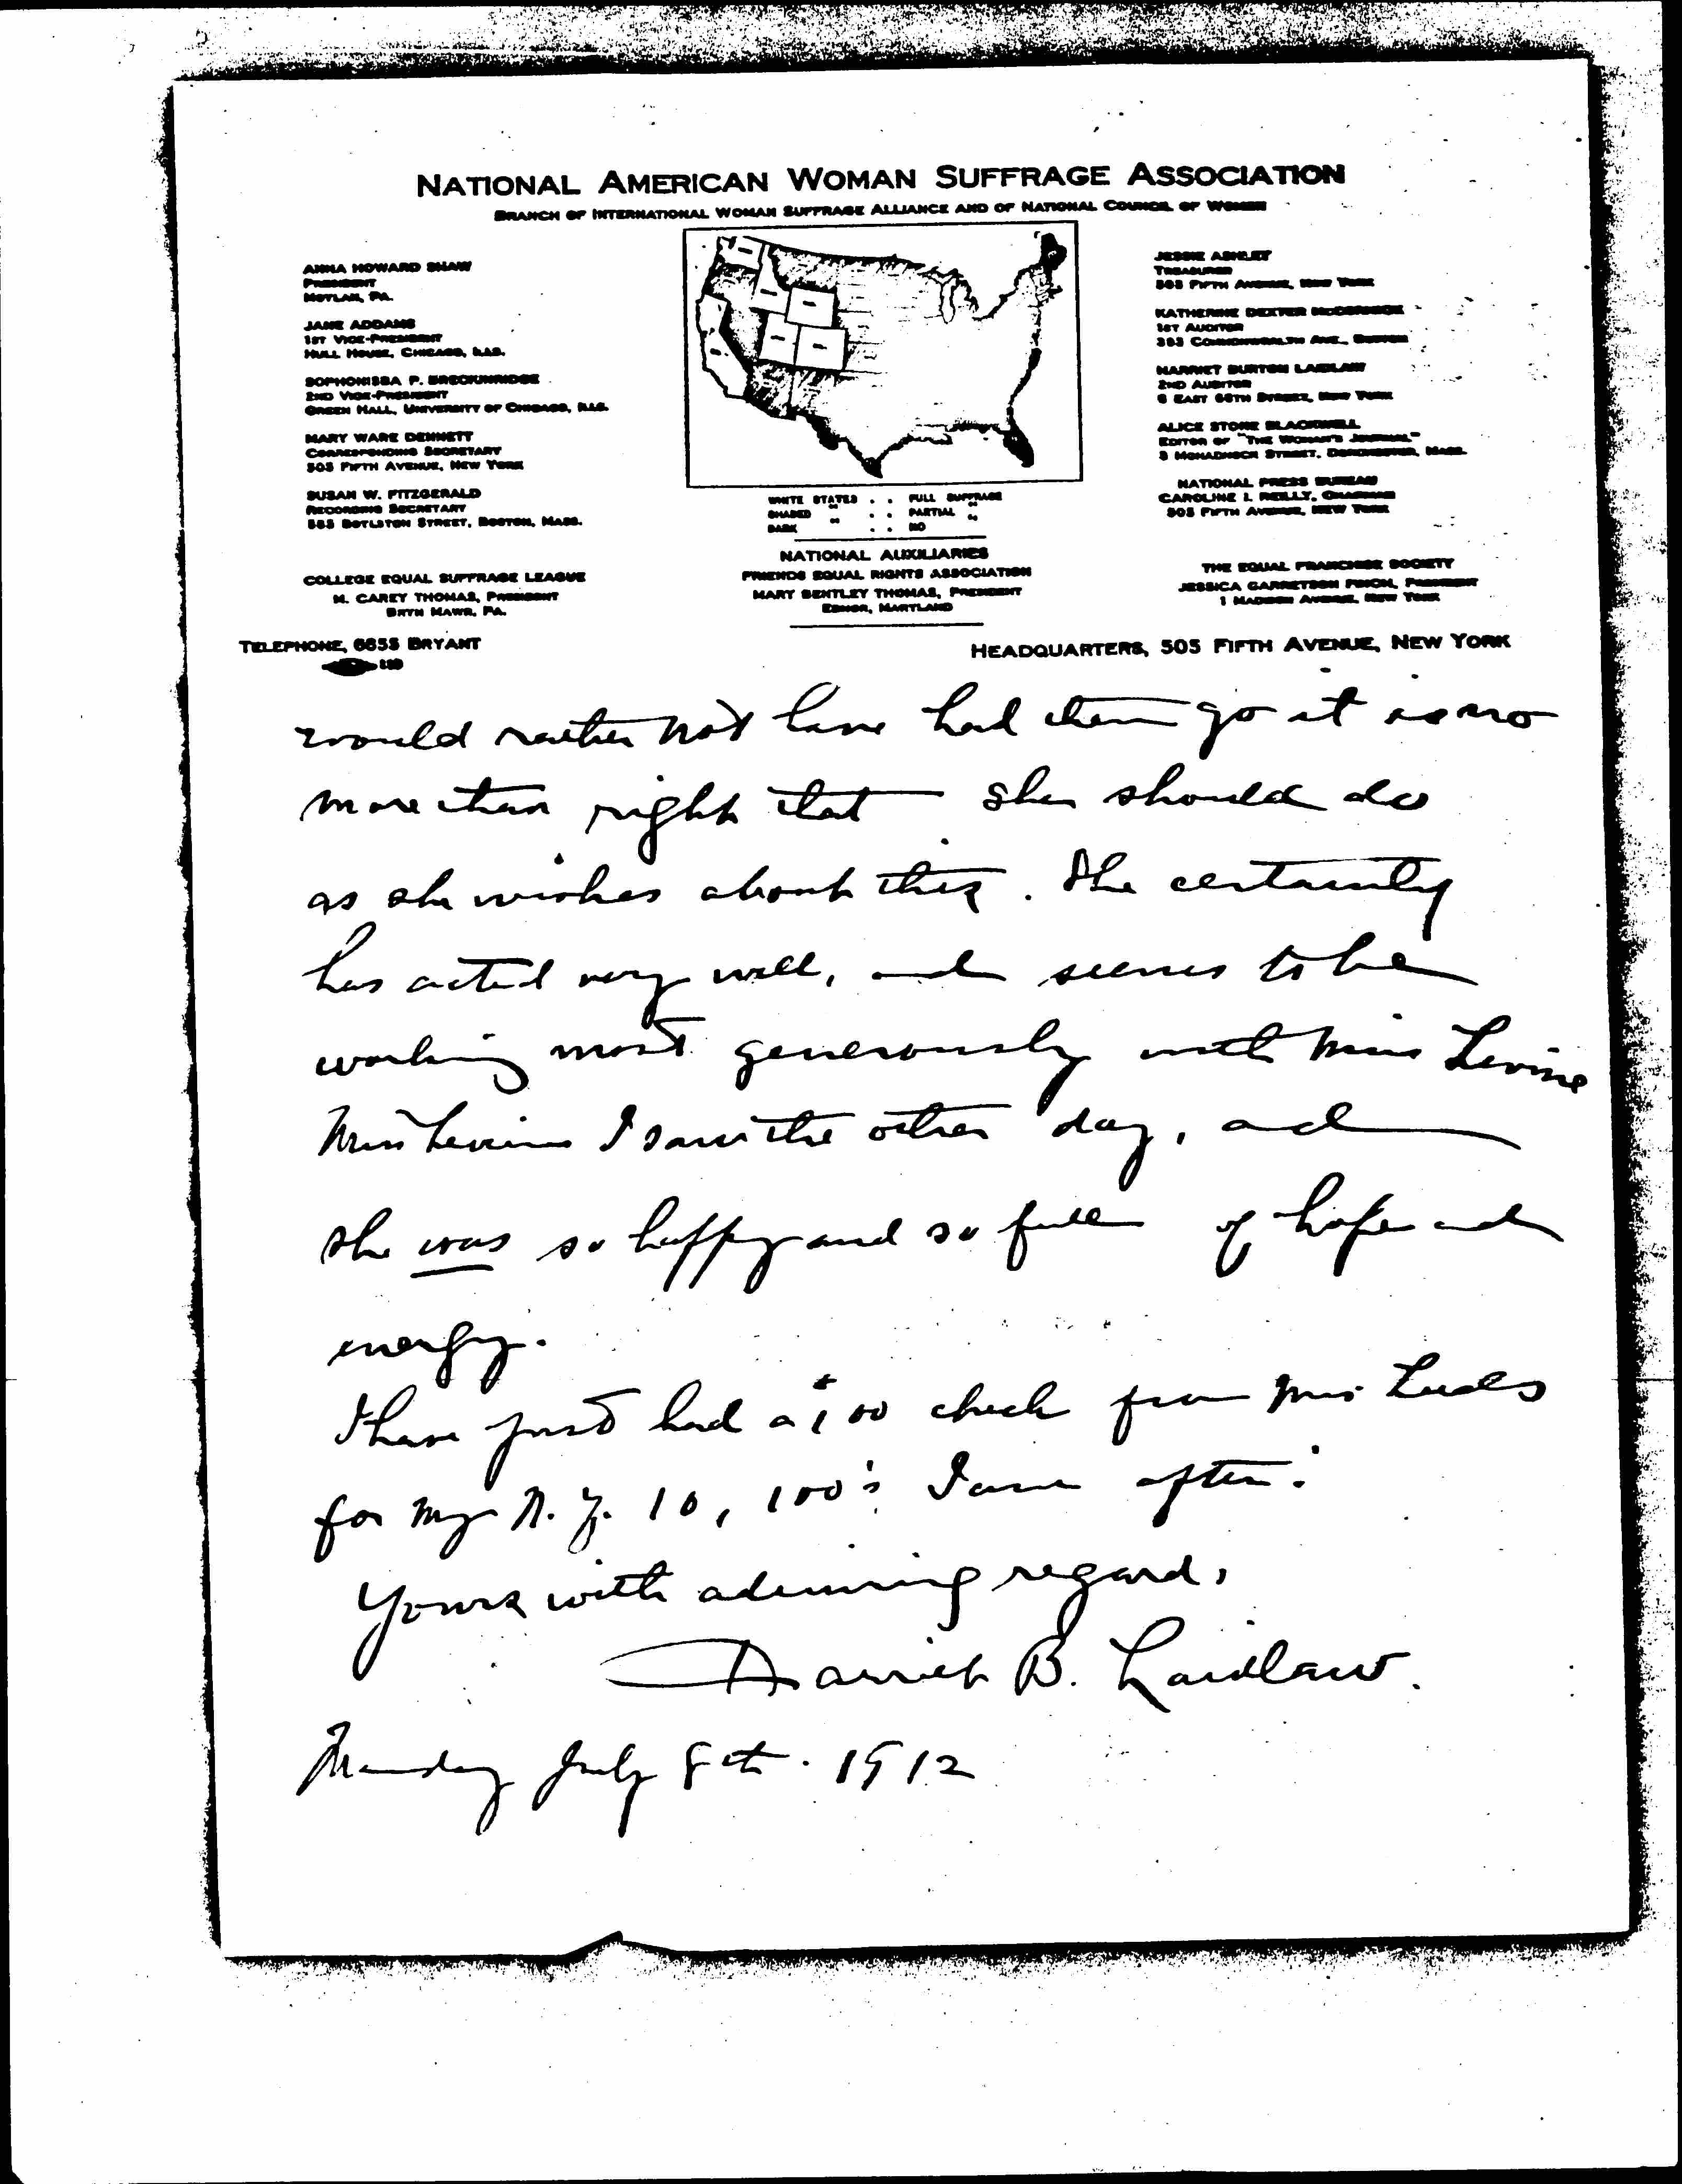 NATIONAL AMERICAN WOMAN SUFFRAGE ASSOCIATION
BRANCH OF INTERNATIONAL WOMAN SUFFRAGE ALLIANCE AND OF NATIONAL COUNCIL OF WOMEN
ANNA HOWARD SHAW
PRESIDENT
MOYLAN, PA.
JANE ADDAMS
1ST VICE-PRESIDENT
HULL HOUSE, CHICAGO, ILLS.
SOPHONISBA P. BRECKINRIDGE
2ND VICE-PRESIDENT
GREEN HALL, UNIVERSITY OF CHICAGO, ILLS.
MARY WARE DENNETT
CORRESPONDING SECRETARY
505 FIFTH AVENUE, NEW YORK
SUSAN W. FITZGERALD
RECORDING SECRETARY
585 BOYLSTON STREET, BOSTON, MASS.
COLLEGE EQUAL SUFFRAGE LEAGUE
M. CAREY THOMAS, PRESIDENT
BRYN MAWR, PA.
WHITE STATES . . FULL SUFFRAGE
SHADED " . . PARTIAL "
DARK " . . NO
NATIONAL AUXILIARIES
FRIENDS EQUAL RIGHTS ASSOCIATION
MARY BENTLEY THOMAS, PRESIDENT
EDNOR, MARYLAND
JESSIE ASHLEY
TREASURER
505 FIFTH AVENUE, NEW YORK
KATHERINE DEXTER McCORMICK
1ST AUDITOR
393 COMMONWEALTH AVE., BOSTON
HARRIET BURTON LAIDLAW
2ND AUDITOR
6 EAST 66TH STREET, NEW YORK
ALICE STONE BLACKWELL
EDITOR OF "THE WOMAN'S JOURNAL"
3 MONADNOCK STREET, DORCHESTER, MASS.
NATIONAL PRESS BUREAU
CAROLINE I. REILLY, CHAIRMAN
505 FIFTH AVENUE, NEW YORK
THE EQUAL FRANCHISE SOCIETY
JESSICA GARRETSON FINCH, PRESIDENT
1 MADISON AVENUE, NEW YORK
TELEPHONE, 6855 BRYANT
HEADQUARTERS, 505 FIFTH AVENUE, NEW YORK
would rather not have had them go it is no
more than right that she should do
as she wishes about this. She certainly
has acted very well, and seems to be
working most generously with Miss Levine
Miss Levine I saw the other day, and
she was so happy and so full of hope and
energy.
I have just had a $100 check from Mrs
for my N.Y. 10, 100's I am after.
Yours with admiring regard,
Harriet B. Laidlaw.
Monday July 8th. 1912